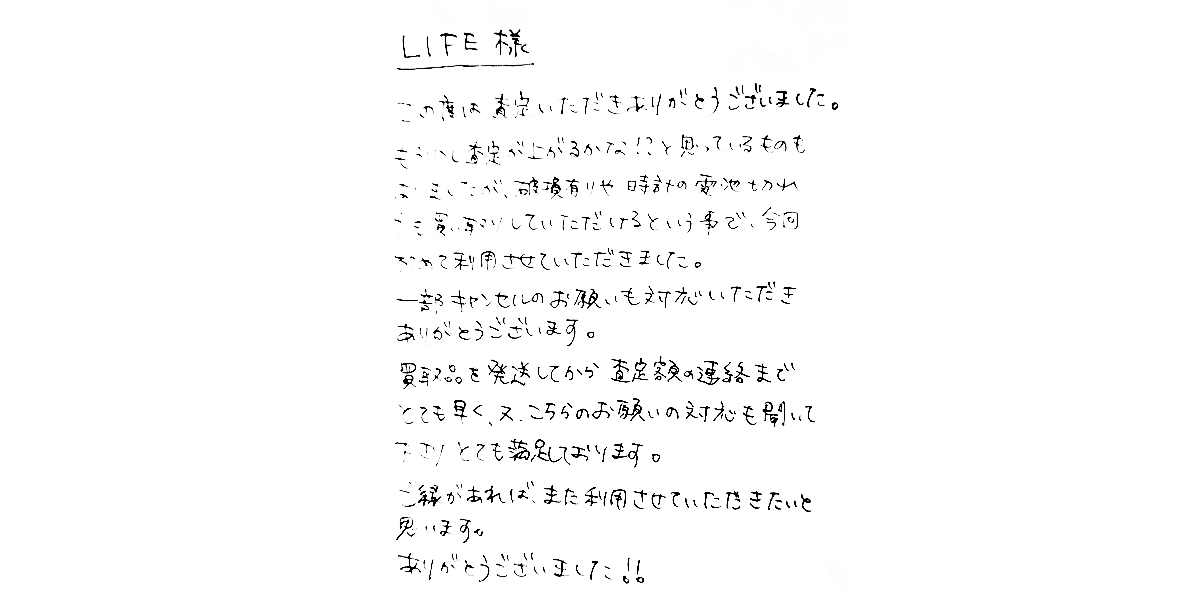 LIFE 様
この度は査定いただきありがとうございました。
もう少し査定が上がるかな!?と思っているものも
ありましたが、破損有りや時計の電池切れ
でも買い取りしていただけるという事で、今回
初めて利用させていただきました。
一部キャンセルのお願いも対応いただき
ありがとうございます。
買取品を発送してから査定額の連絡まで
とても早く、又、こちらのお願いの対応も聞いて
下さりとても満足しております。
ご縁があれば、また利用させていただきたいと
思います。
ありがとうございました!!